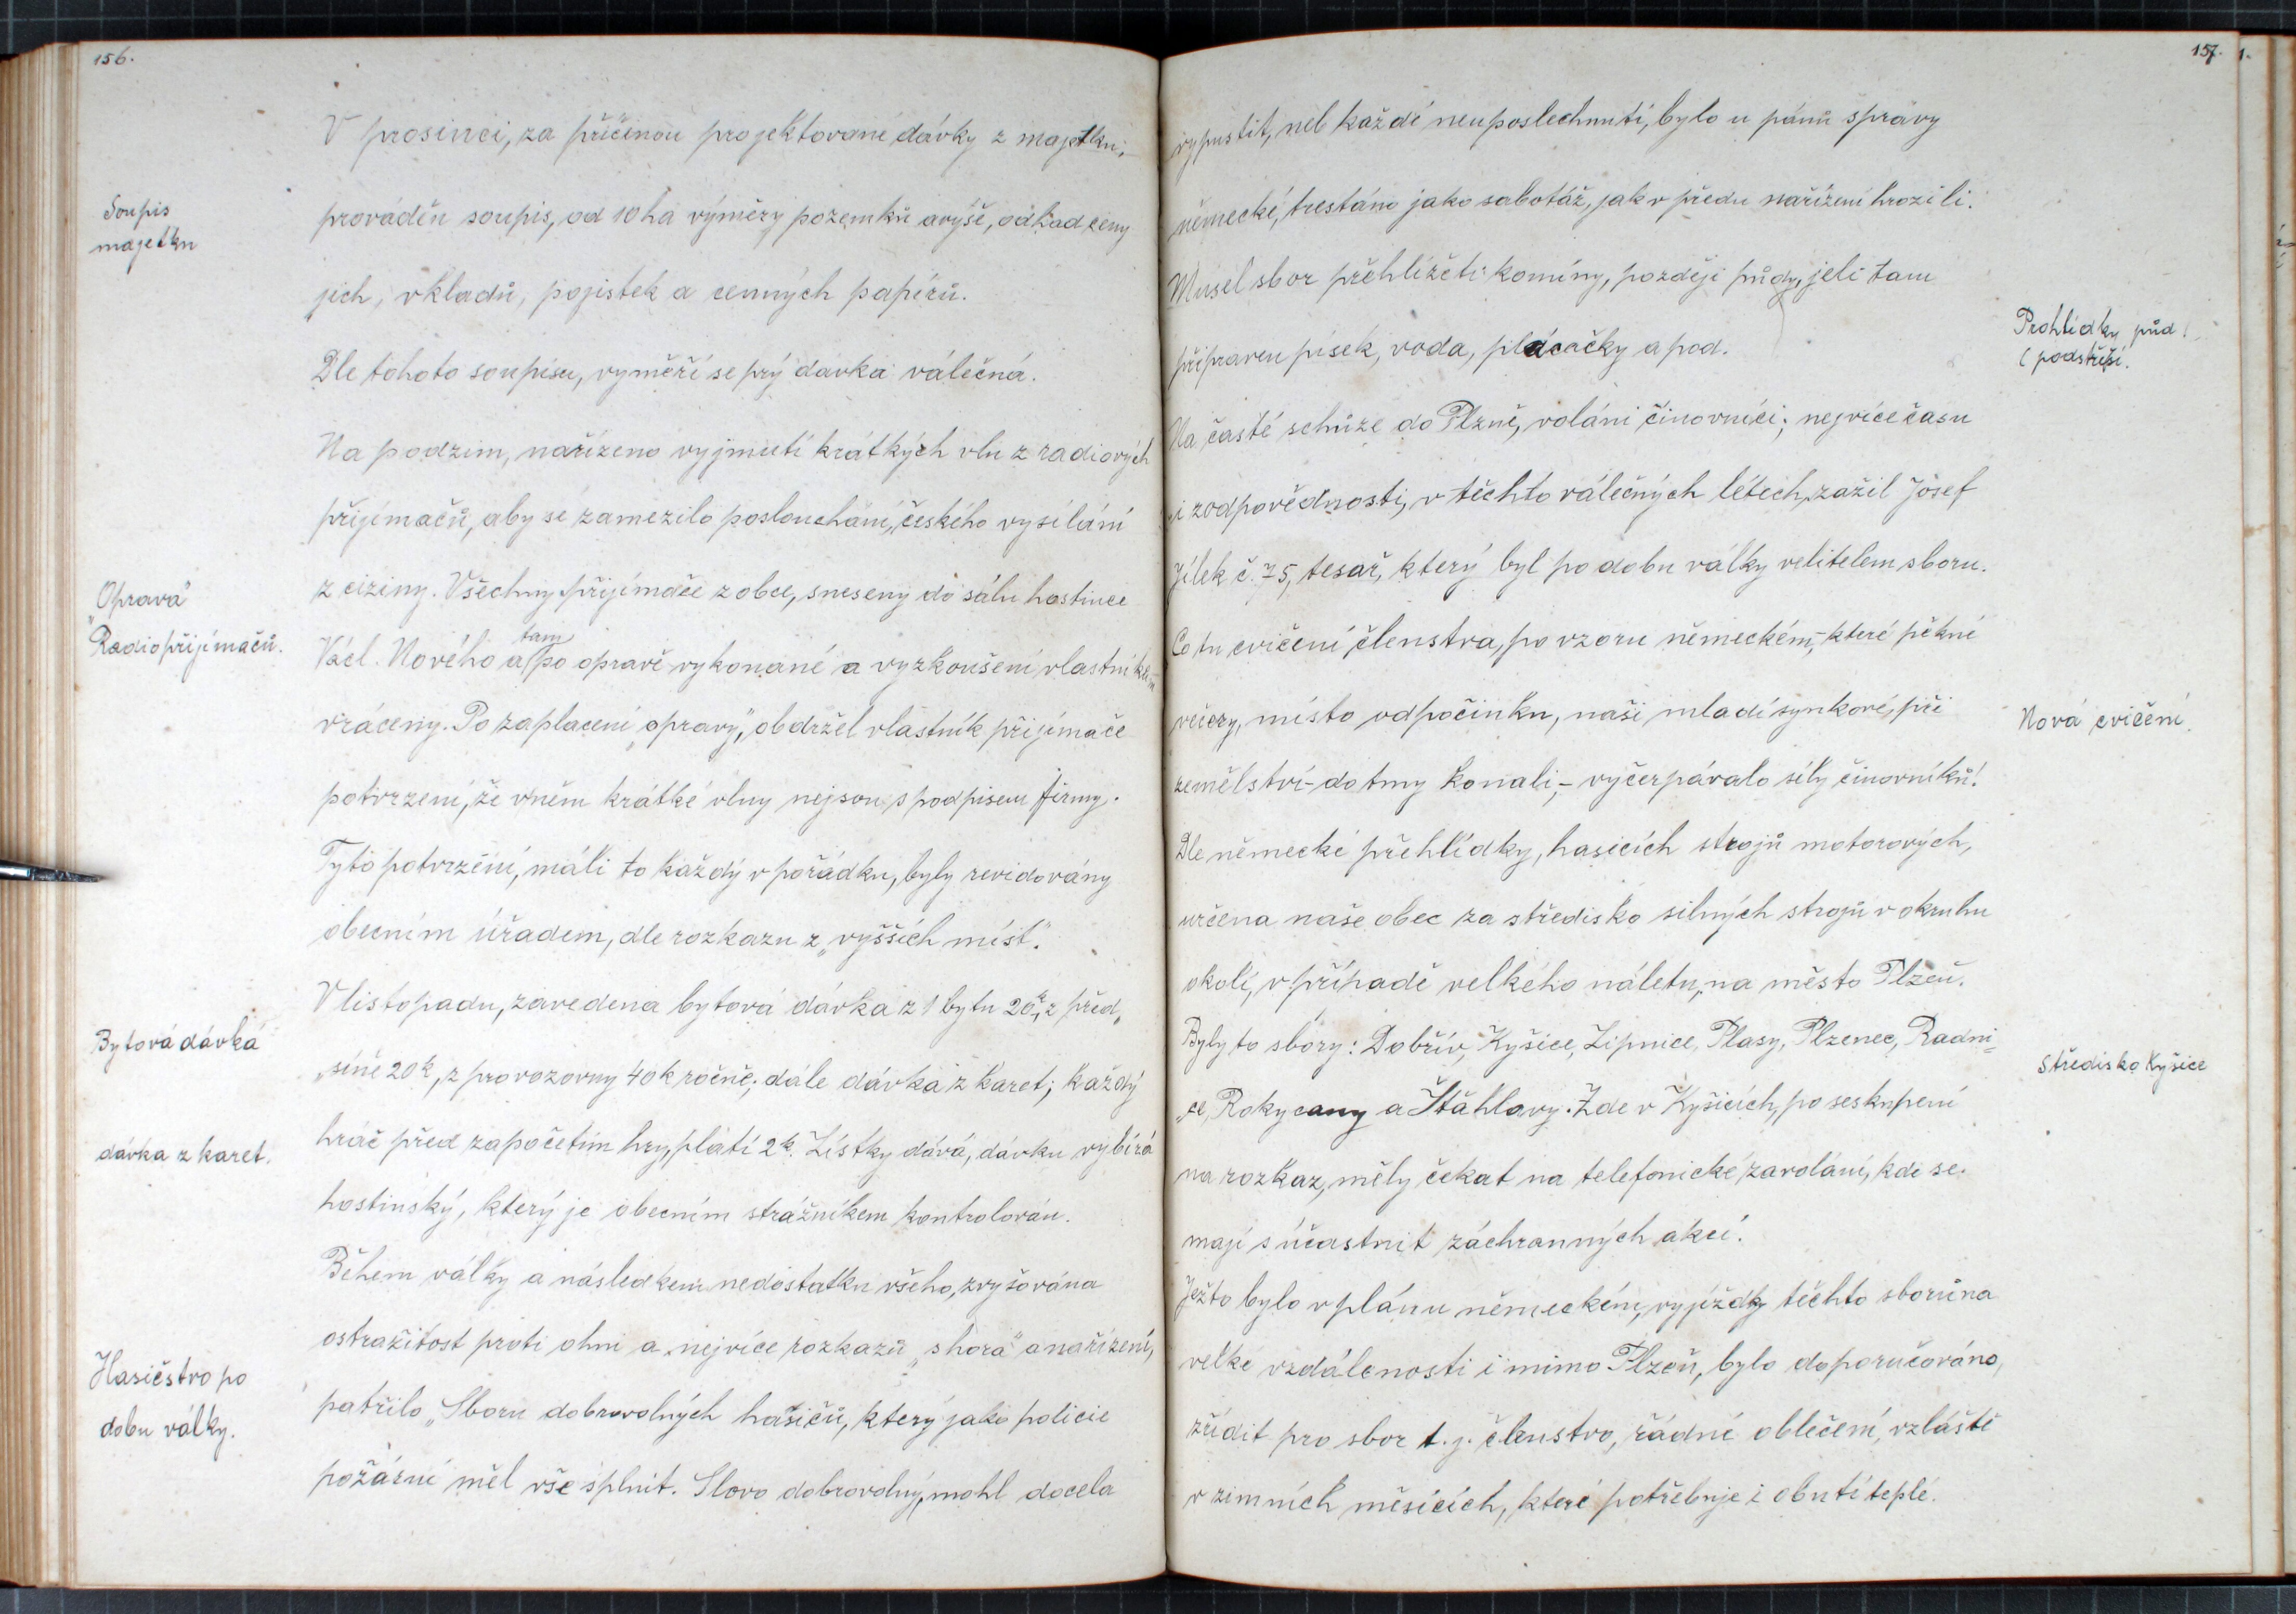 156.
V prosinci, za příčinou projektované dávky z majetku,
Soupis
majetku
prováděn soupis, od 10 ha výměry pozemků avýše, odhad ceny
jich, vkladů, pojistek a cenných papírů.
Dle tohoto soupisu, vyměří se prý davka válečná.
Na podzim, nařízeno vyjmutí krátkých vln z radiových
přijímačů, aby se zamezilo poslouchání, českého vysílání
z ciziny. Všechny přijímače z obce, sneseny do sálu hostince
"Oprava"
Radiopřijímačů.
Václ. Nového a tam po opravě vykonané a vyzkoušení vlastníkům
vráceny. Po zaplacení „opravy", obdržel vlastník přijímače
potvrzení, že vněm krátké vlny nejsou s podpisem firmy.
Tyto potvrzení, máli to každý v pořádku, byly revidovány
obecním úřadem, dle rozkazu z „vyšších míst".
V listopadu, zavedena bytová dávka z 1 bytu 20 k, z před„
Bytová dávka
„síně 20 k, z provozovny 40 k ročně; dále dávka z karet; každý
dávka z karet.
hráč před započetím hry, platí 2 k. Lístky dává, dávku vybírá
hostinský, který je obecním strážníkem kontrolován.
Během války a následkem nedostatku všeho, zvyšována
ostražitost proti ohni a nejvíce rozkazů „shora" a nařízení,
Hasičstvo po
dobu války.
patřilo „Sboru dobrovolných hasičů, který jako policie
požární měl vše splnit. Slovo dobrovolný, mohl docela
157.
vypustit, neb každé neuposlechnutí, bylo u pánů správy
německé, trestáno jako sabotáž, jak v předu nařízení hrozili.
Musel sbor přehlížeti komíny, později půdy, jeli tam
Prohlídky půd
(podstřeší.
připraven písek, voda, plácačky a pod.
Na časté schůze do Plzně, voláni činovníci; nejvíce času
i zodpovědnosti, v těchto válečných létech, zažil Josef
Jílek č. 75, tesař, který byl po dobu války velitelem sboru.
Co tu cvičení členstva, po vzoru německém, - které pěkné
večery, místo odpočinku, naši mladí synkové, při
Nová cvičení.
zemělství - do tmy konali, - vyčerpávalo síly činovníků!
Dle německé přehlídky, hasicích strojů motorových,
určena naše obec za středisko silných strojů v okruhu
okolí, v případě velkého náletu, na město Plzeň.
Byly to sbory: Dobřív, Kyšice, Lipnice, Plasy, Plzenec, Radni=
Středisko Kyšice
ce, Rokycany a Šťáhlavy. Zde v Kyšicích, po seskupení
na rozkaz, měly čekat na telefonické zavolání, kde se
mají súčastnit záchranných akcí.
Ježto bylo v plánu německém, vyjížďky těchto sborů na
velké vzdálenosti i mimo Plzeň, bylo doporučováno,
zřídit pro sbor t.j. členstvo, řádné oblečení, vzláště
v zimních měsících, které potřebuje i obutí teplé.